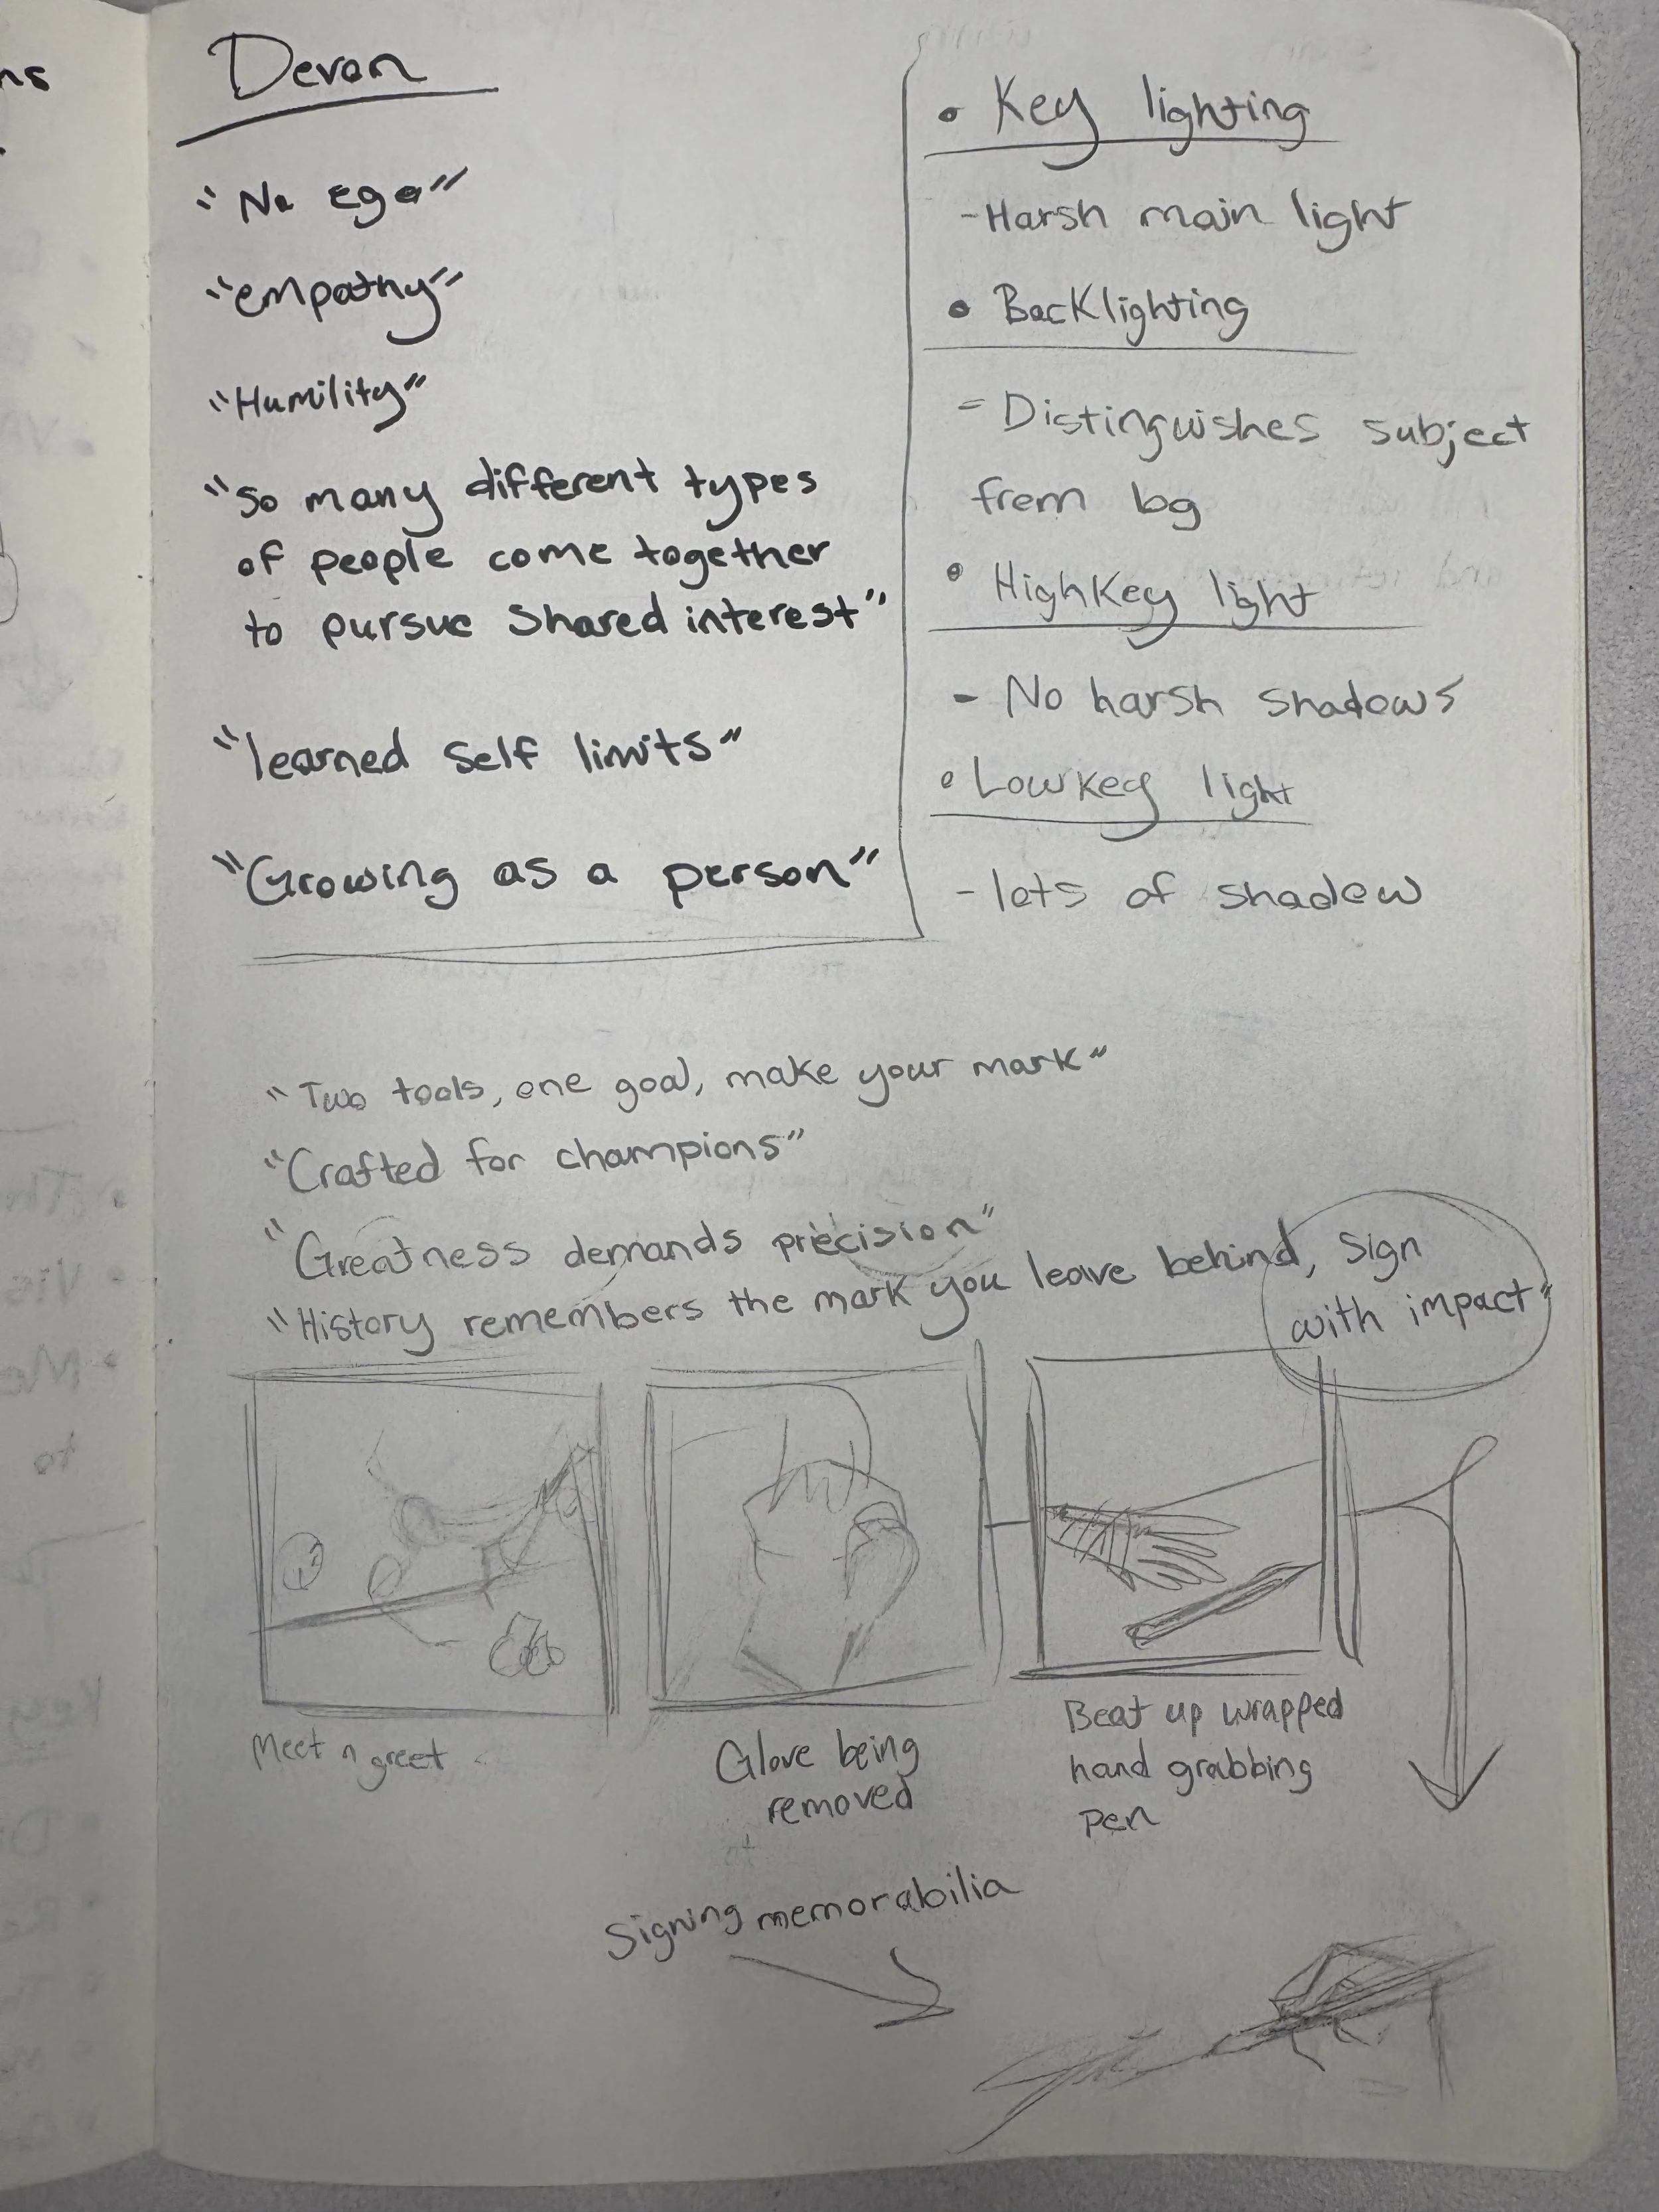 ns
Devon
"No ego"
"empathy"
"Humility"
"So many different types
of people come together
to pursue Shared interest"
"learned self limits"
"Growing as a person"
• Key lighting
- Harsh main light
• Backlighting
- Distinguishes subject
from bg
• HighKey light
- No harsh shadows
• Lowkey light
- lots of shadow
"Two tools, one goal, make your mark"
"Crafted for champions"
"Greatness demands precision"
"History remembers the mark you leave behind, Sign
with impact"
Meet n greet
Glove being
removed
Beat up wrapped
hand grabbing
pen
Signing memorabilia